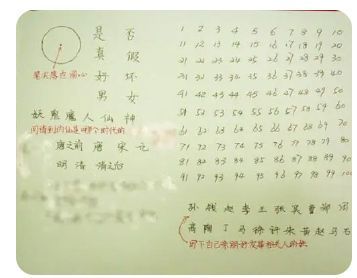 是 否
真 假
好 坏
男 女
笔尖悬在圆心
妖 鬼 魔 人 仙 神
问请到的仙是哪个时代的
唐之前 唐 宋 元
明 清 清之后
1 2 3 4 5 6 7 8 9 10
11 12 13 14 15 16 17 18 19 20
21 22 23 24 25 26 27 28 29 30
31 32 33 34 35 36 37 38 39 40
41 42 43 44 45 46 47 48 49 50
51 52 53 54 55 56 57 58 59 60
61 62 63 64 65 66 67 68 69 70
71 72 73 74 75 76 77 78 79 80
81 82 83 84 85 86 87 88 89 90
91 92 93 94 95 96 97 98 99 100
孙 钱 赵 李 王 张 吴 曹 郑 周
高 陶 丁 马 徐 许 朱 黄 赵 马 石
写下自己亲朋好友等相关人的姓